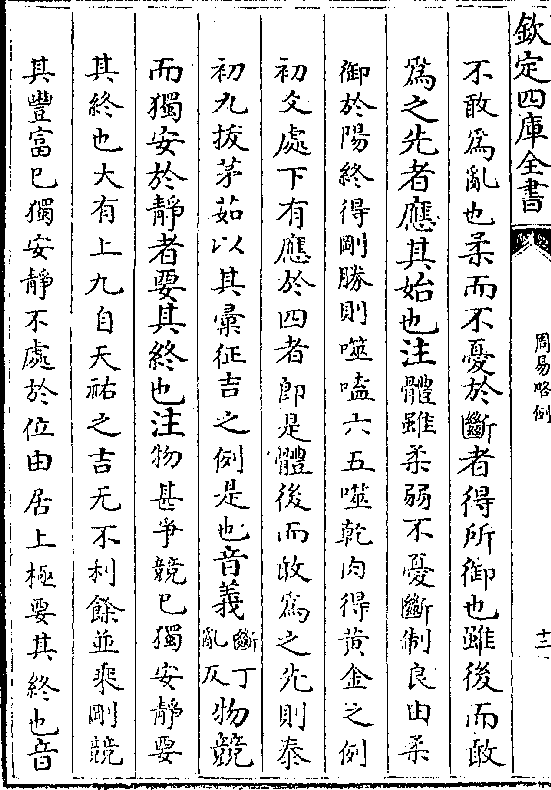 欽定四庫全書
周易略例
十二
不敢爲亂也柔而不憂於斷者得所御也雖後而敢
爲之先者應其始也注體雖柔弱不憂斷制良由柔
御於陽終得剛勝則噬嗑六五噬乾肉得黃金之例
初爻處下有應於四者即是體後而敢爲之先則泰
初九拔茅茹以其彙征吉之例是也音義斷丁亂反物競
而獨安於靜者要其終也注物甚爭競已獨安靜要
其終也大有上九自天祐之吉无不利餘並乘剛競
其豐富已獨安靜不處於位由居上極要其終也音